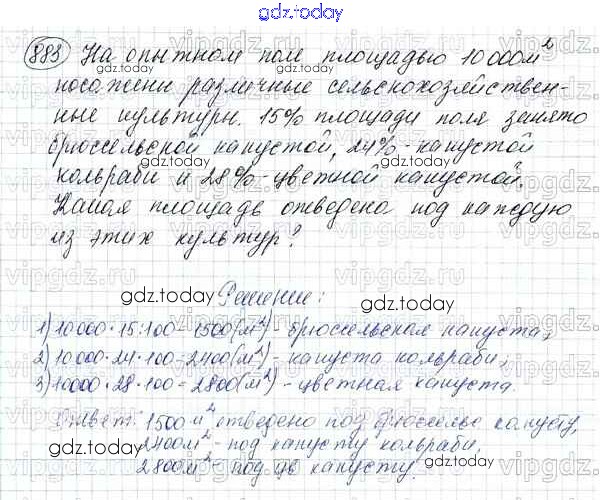 gdz.today
883 На опытном поле площадью 10 000м²
посажены различные сельскохозяйствен-
ные культуры. 15% площади поля занято
брюссельской капустой, 24%-капустой
gdz.today gdz.today
кольраби и 28%-цветной капустой.
Какая площадь отведена под каждую
из этих культур?
gdz.today Решение:
1) 10000·15:100=1500(м²)-брюссельская капуста;
2) 10000·24:100=2400(м²)-капуста кольраби;
gdz.today gdz.today
3) 10000·28:100=2800(м²)-цветная капуста.
Ответ: 1500м² отведено под брюссельс капусту,
gdz.today gdz.today
2400м²-под капусту кольраби,
2800м²-под цв капусту.
gdz.today